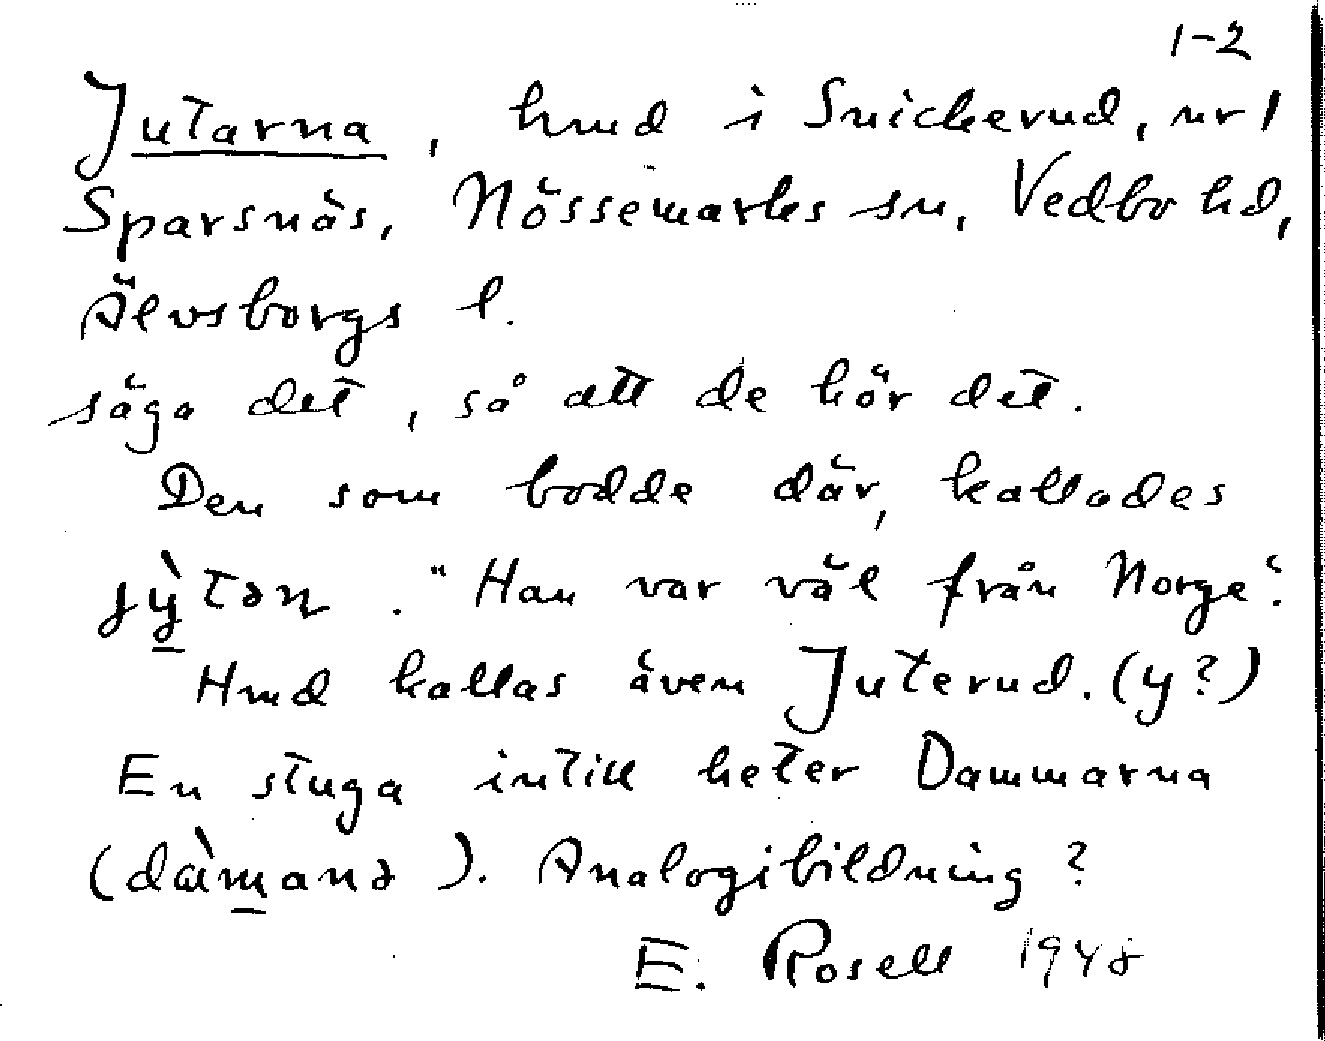 1-2
Jutarna, hmd i Snickerud, nr 1
Sparsnäs, Nössemarks sn, Vedbo hd,
Älvsborgs l.
säga det, så att de hör det.
Den som bodde där, kallades
jỳtən. "Han var väl från Norge".
Hmd kallas även Juterud. (y?)
En stuga intill heter Dammarna
(dàmanə). Analogibildning?
E. Rosell 1948